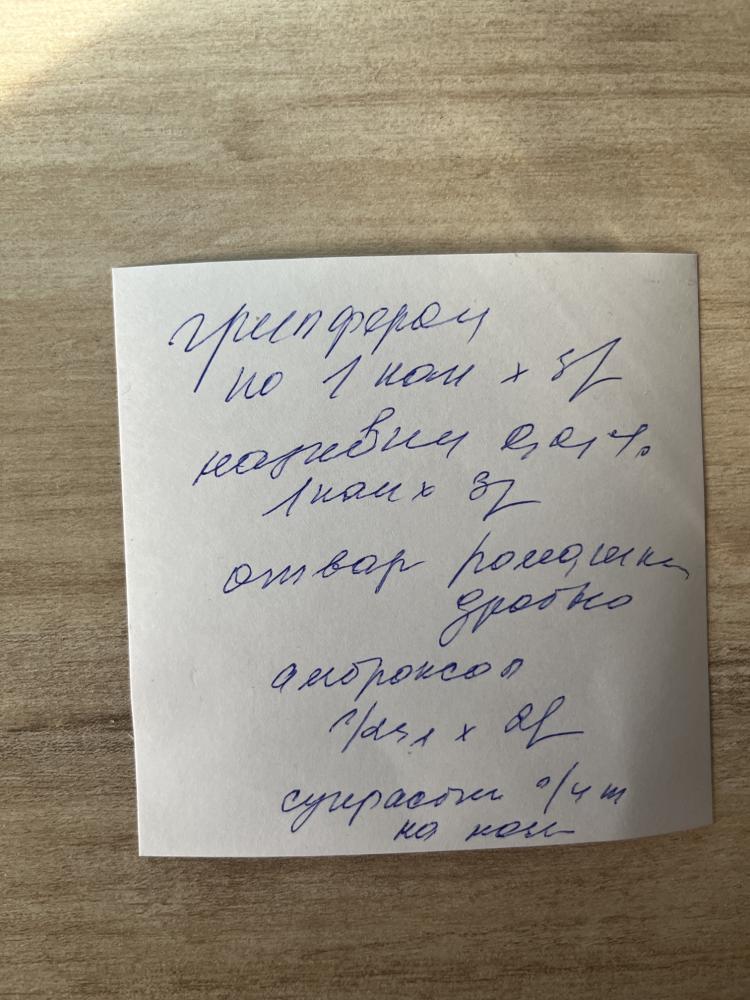 гриппферон
по 1 кап x 3р
називин 0,01%
1 кап x 3р
отвар ромашки
дробно
амброксол
1/2 ч л x 2р
супрастин 1/4 т
на ночь